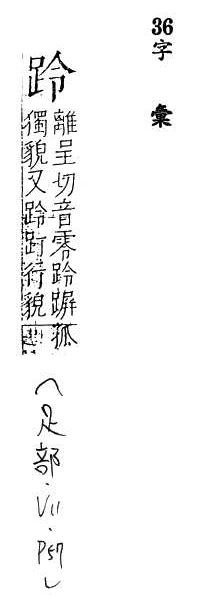 36字 彙
跉
離呈切音零跉𨇽孤
獨貌又跉趶行貌
（足部．V11．P57）